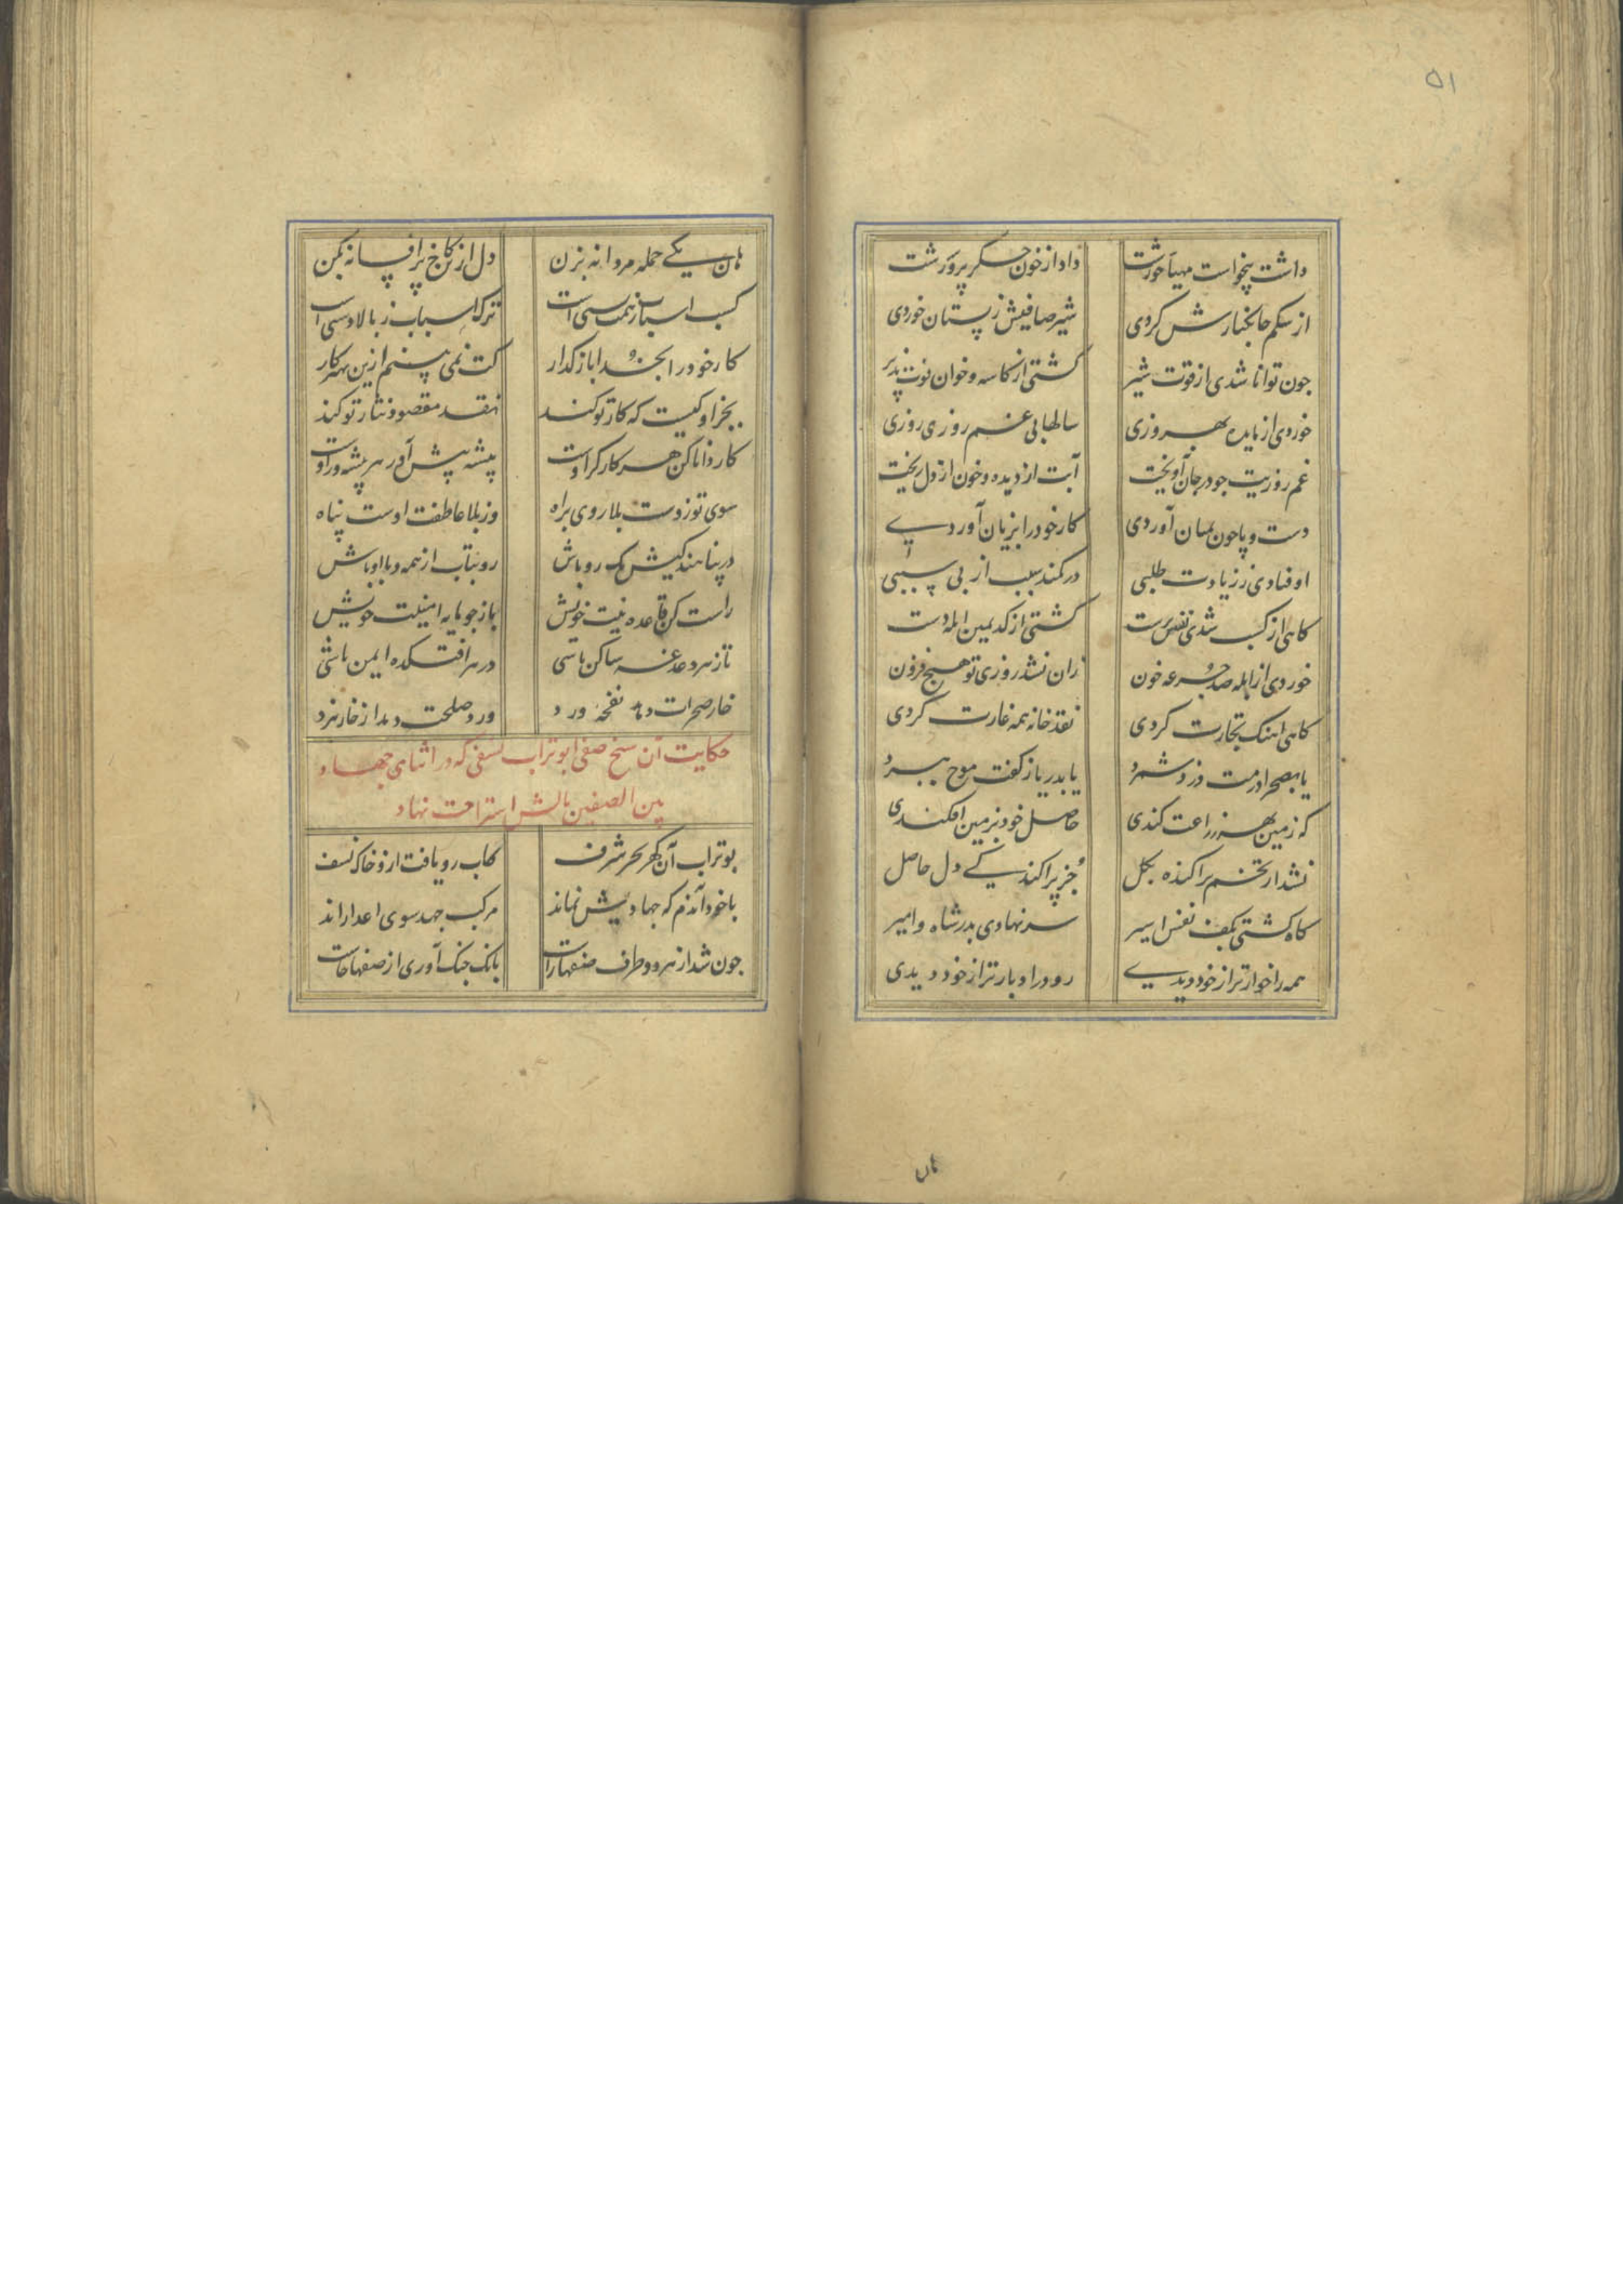 ۵۱
داشت بیخواست مهیا خورشت داد از خون جگر پرورشت
از شکم جا بکنارش کردی شیر صافیش ز پستان خوردی
جون توانا شدی از قوت شیر گشتی از کاسه و خوان قوت پذیر
خوردی از مایده بهروزی سالها بی غم روزی روزی
غم روزیت جو در جان آویخت آبت از دیده و خون از دل ریخت
دست و پا جون بمیان آوردی کار خود را بزیان آوردی
اوفتادی ز زیادت طلبی در کمند سبب از بی سببی
کاهی از کسب شدی نفس پرست گشتی از کد یمین ابله دست
خوردی از ابله صد جرعه خون زان نشد روزی تو هیچ فزون
کاهی اهنک تجارت کردی نقد خانه همه غارت کردی
یا بصحرا درمت دزد شمرد یا بدریا ز کفت موج ببرد
که زمین بهر زراعت کندی حاصل خود بزمین افکندی
نشد از تخم پراکنده بکل جز پراکندکی دل حاصل
کاه گشتی بکف نفس اسیر سر نهادی بدر شاه و امیر
همه را خوارتر از خود دیدی رو در ادبارتر از خود دیدی
هان
هان یکی حمله مردانه بزن دل ازین کاخ پر افسانه بکن
کسب اسباب ز همت پستی است ترک اسباب ز بالادستی است
کار خود را بخدا باز گذار کت نمی بینم ازین بهتر کار
بجز او کیست که کار تو کند نقد مقصود نثار تو کند
کار دانا کن هر کارگر اوست پیشه پیش آور هر پیشه ور اوست
سوی تو ز دست بلا روی براه وز بلا عاطفت اوست پناه
در پناهندکیش یک رو باش رو بتاب از همه و با او باش
راست کن قاعده نیت خویش باز جو مایه امنیت خویش
تا ز هر دغدغه ساکن باشی در هر افتکده ایمن باشی
خار صحرات دهد نفحه ورد ورد صلحت دمد از خار نبرد
حکایت آن شیخ صفی ابو تراب نسفی که در اثنای جهاد
بین الصفین بالش استراحت نهاد
بو تراب آن گهر بحر شرف کاب رو یافت ازو خاک نسف
با خود آندم که جهادیش نماند مرکب جهد سوی اعدا راند
جون شد از هر دو طرف صفها راست بانک جنک آوری از صفها خاست